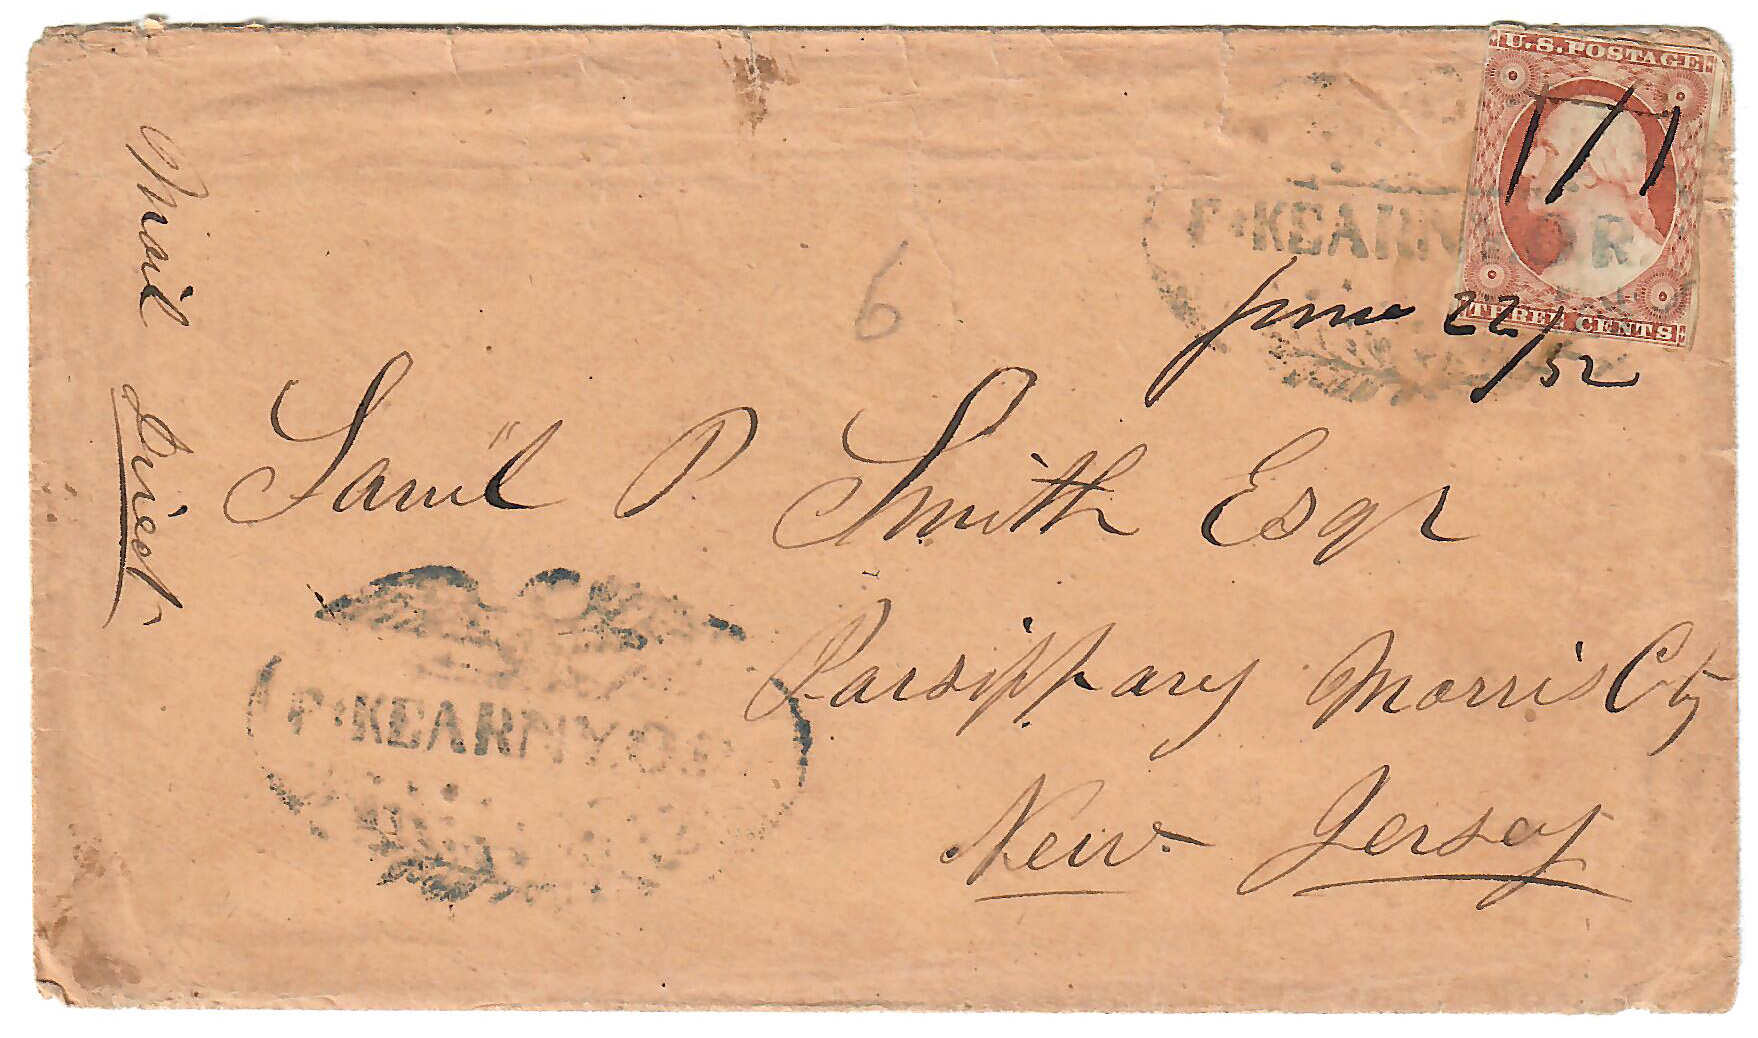 U.S. POSTAGE
THREE CENTS
F. KEARNY. O.R.
June 22/52
Mail Direct
6
Sam"l P. Smith Esqr
Parsippany Morris Cty
New. Jersey
F. KEARNY. O.R.